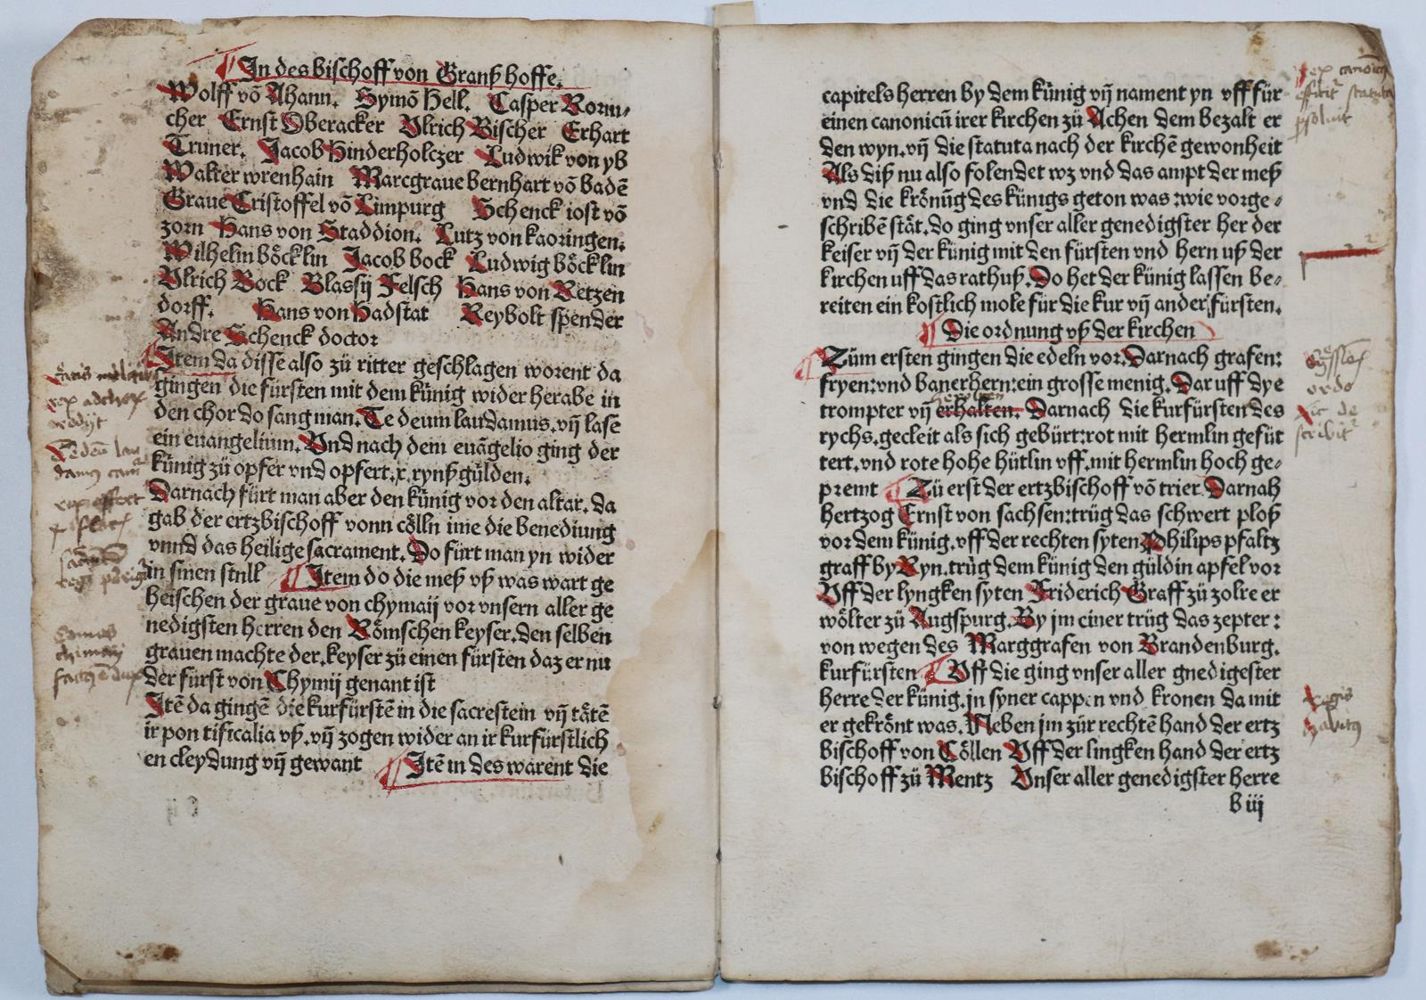 In des bischoff von Granß hoffe.
Wolff võ Ahann. Symõ Hell. Casper Rorm⸗
cher Ernst Oberacker Vlrich Bischer Erhart
Truner. Jacob Hinderholczer Ludwik von yb
Walter wrenhain Marcgraue bernhart võ badẽ
Graue Cristoffel võ Limpurg Schenck iost võ
zorn Hans von Staddion. Lutz von kaoringen.
Wilhelm böcklin Jacob bock Ludwig böcklin
Vlrich Bock Blassij Felsch Hans von Retzen
dorff. Hans von Hadstat Reybolt spender
Andre Schenck doctor
Item da disse also zü ritter geschlagen worent da
gingen die fürsten mit dem künig wider herabe in
den chor do sang man. Te deum laudamus. vñ lase
ein euangelium. Vnd nach dem euãgelio ging der
künig zü opfer vnd opfert .x. rynß gülden.
Darnach fürt man aber den künig vor den altar. da
gab der ertzbischoff vonn cölln ime die benediung
vnnd das heilige sacrament. Do fürt man yn wider
in sinen stnll Item do die meß vß was wart ge
heischen der graue von chymaij vor vnsern aller ge
nedigsten herren den Römschen keyser. den selben
grauen machte der. keyser zü einen fürsten daz er nu
der fürst von Chymij genant ist
Itẽ da gingẽ die kurfürstẽ in die sacrestein vñ tätẽ
ir pontificalia vß. vñ zogen wider an ir kurfürstlich
en cleydung vñ gewant Itẽ in des warent die
capitels herren by dem künig vñ nament yn vff für
einen canonicũ irer kirchen zü Achen dem bezalt er
den wyn. vñ die statuta nach der kirchẽ gewonheit
Als diß nu also folendet wz vnd das ampt der meß
vnd die krönũg des künigs geton was: wie vorge⸗
schribẽ stät. do ging vnser aller genedigster her der
keiser vñ der künig mit den fürsten vnd hern uß der
kirchen uff das rathuß. Do het der künig lassen be⸗
reiten ein kostlich mole für die kur vñ ander fürsten.
Die ordnung vß der kirchen
Züm ersten gingen die edeln vor. Darnach grafen:
fryen: vnd banerhern: ein grosse menig. Dar uff dye
trompter vñ erhalten. Darnach die kurfürsten des
rychs. gecleit als sich gebürt: rot mit hermlin gefüt
tert. vnd rote hohe hütlin vff. mit hermlin hoch ge⸗
premt Zü erst der ertzbischoff võ trier. Darnah
hertzog Ernst von sachsen: trüg das schwert ploß
vor dem künig. vff der rechten syten Philips pfaltz
graff by Ryn. trüg dem künig den güldin apfel vor
Vff der lyngken syten Friderich Graff zü zolre er
wölter zü Augspurg. By jm einer trüg das zepter:
von wegen des Marggrafen von Brandenburg.
kurfürsten Vff die ging vnser aller gnedigester
herre der künig. jn syner cappen vnd kronen da mit
er gekrönt was. Neben jm zür rechtẽ hand der ertz
bischoff von Cöllen Vff der lingken hand der ertz
bischoff zü Mentz Vnser aller genedigster herre
b iij